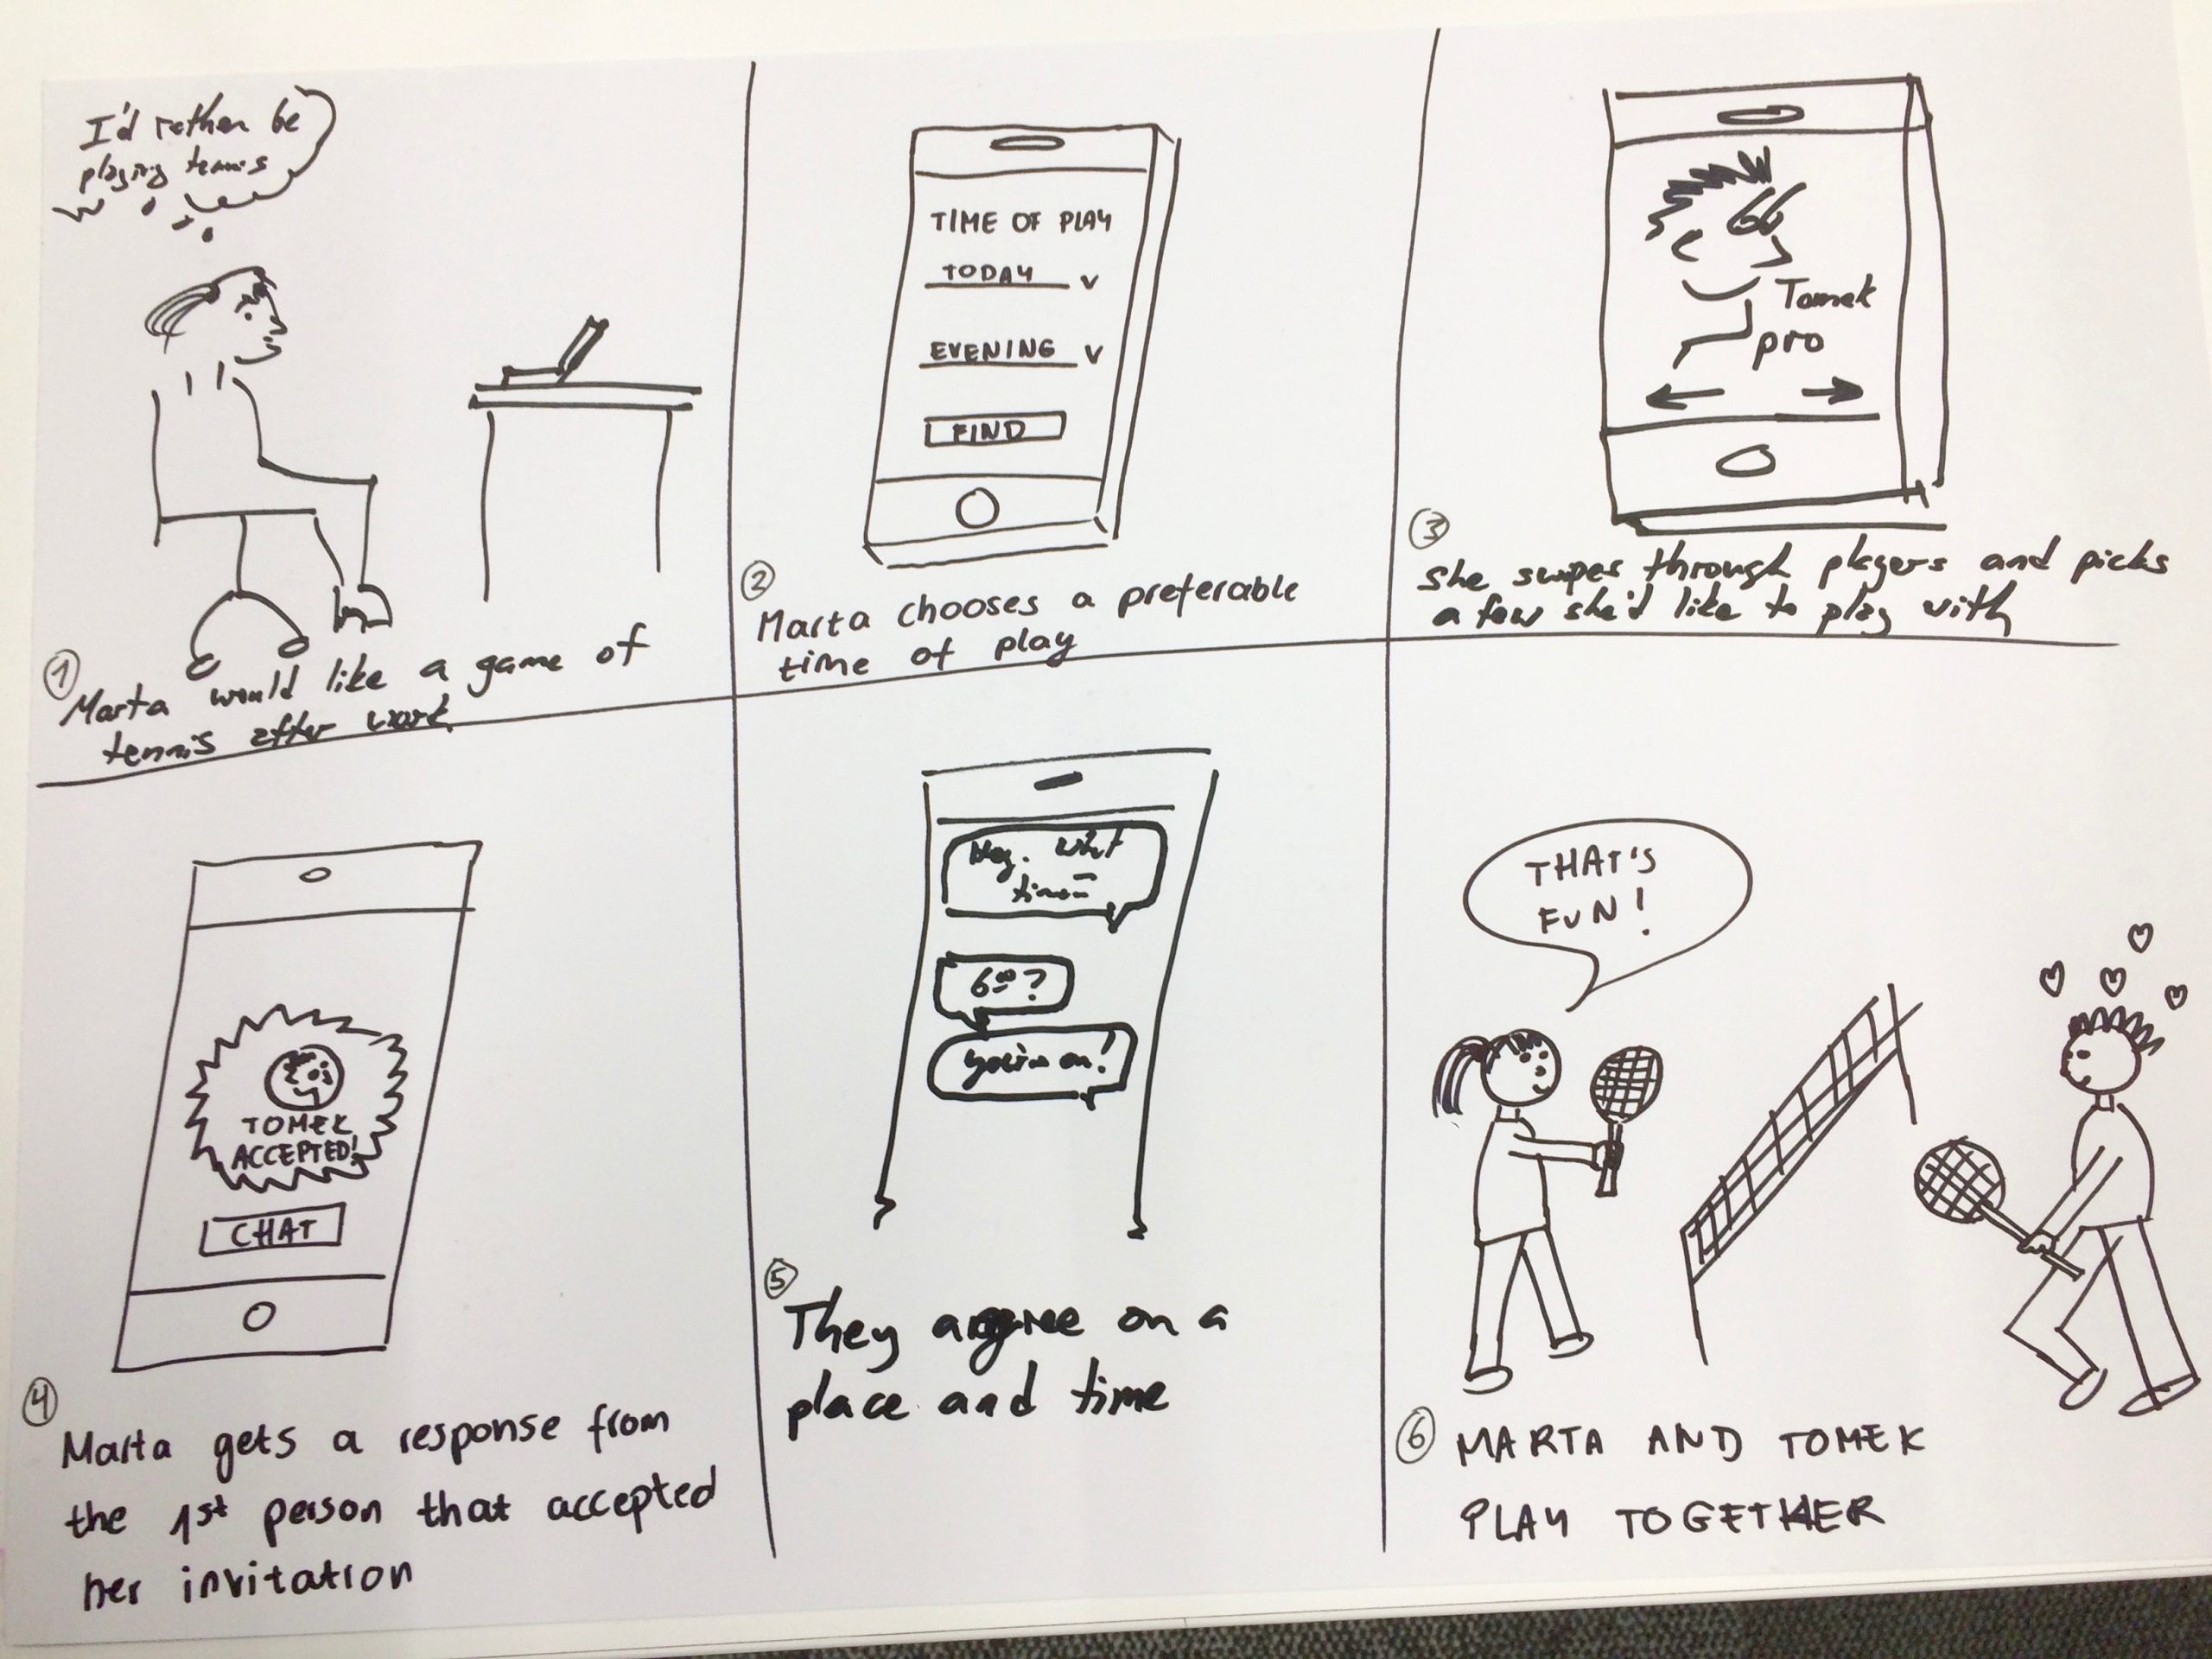 I'd rather be
playing tennis
1
Marta would like a game of
tennis after work
TIME OF PLAY
TODAY v
EVENING v
FIND
2
Marta chooses a preferable
time of play
Tomek
pro
3
She swipes through players and picks
a few she'd like to play with
TOMEK
ACCEPTED!
CHAT
4
Marta gets a response from
the 1st person that accepted
her invitation
Hey. what
time
6⁰⁰?
You're on!
5
They agree on a
place and time
THAT'S
FUN!
6
MARTA AND TOMEK
PLAY TOGETHER